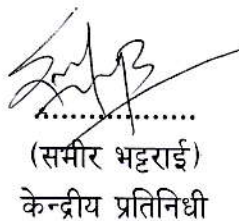 (समीर भट्टराई)
केन्द्रीय प्रतिनिधी